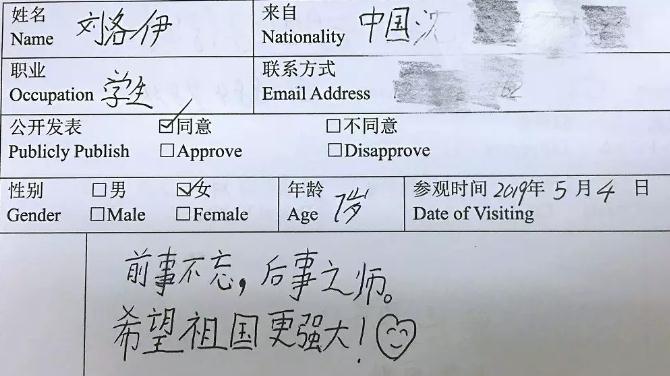 姓名 刘洛伊 来自 中国
Name Nationality
职业 学生 联系方式
Occupation Email Address
公开发表 ☑同意 □不同意
Publicly Publish □Approve □Disapprove
性别 □男 ☑女 年龄 7岁 参观时间 2019年5月4日
Gender □Male □Female Age Date of Visiting
前事不忘，后事之师。
希望祖国更强大！